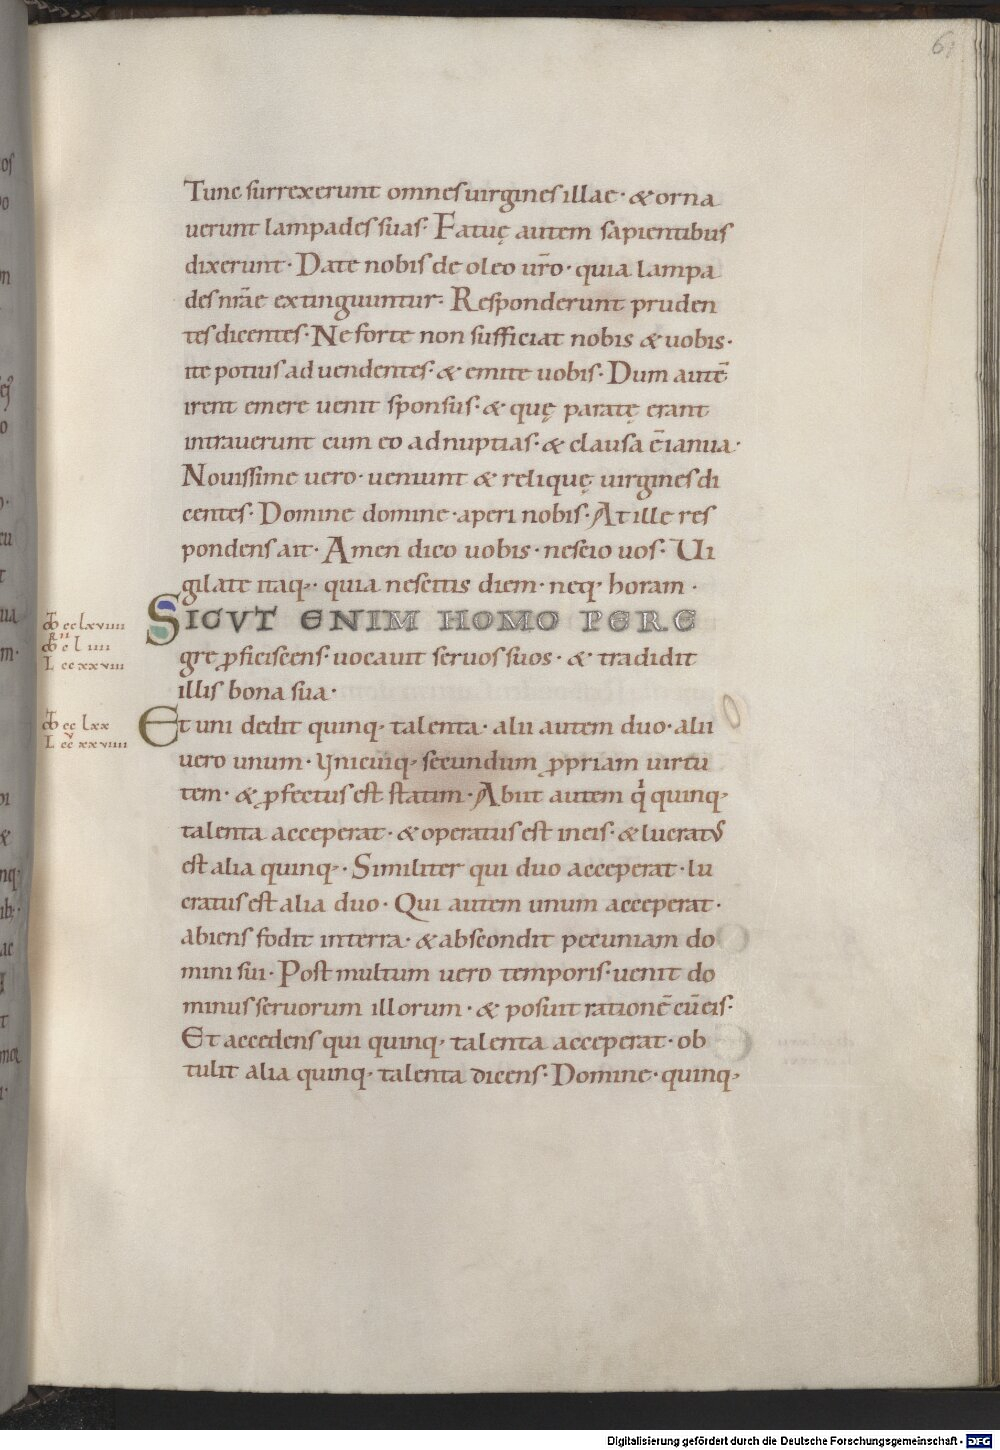 61
Tunc surrexerunt omnes uirgines illae · & orna
uerunt lampades suas · Fatuę autem sapientibus
dixerunt · Date nobis de oleo ur̄o · quia lampa
des nrāe extinguuntur · Responderunt pruden
tes dicentes · Ne forte non sufficiat nobis & uobis ·
ite potius ad uendentes · & emite uobis · Dum autē
irent emere uenit sponsus · & quę paratę erant
intrauerunt cum eo ad nuptias · & clausa ē ianua ·
Nouissime uero · ueniunt & reliquę uirgines di
centes · Domine domine · aperi nobis · At ille res
pondens ait · Amen dico uobis · nescio uos · Ui
gilate itaq· · quia nescitis diem · neq· horam ·
SICVT ENIM HOMO PERE
gre ꝓficiscens · uocauit seruos suos · & tradidit
illis bona sua ·
Et uni dedit quinq· talenta · alii autem duo · alii
uero unum · Unicuiq· secundum ꝓpriam uirtu
tem · & ꝓfectus est statim · Abiit autem qͥ quinq·
talenta acceperat · & operatus est in eis · & lucratus
est alia quinq· · Similiter qui duo acceperat · lu
cratus est alia duo · Qui autem unum acceperat ·
abiens fodit in terra · & abscondit pecuniam do
mini sui · Post multum uero temporis · uenit do
minus seruorum illorum · & posuit rationē cū eis ·
Et accedens qui quinq· talenta acceperat · ob
tulit alia quinq· talenta dicens · Domine · quinq·
Digitalisierung gefördert durch die Deutsche Forschungsgemeinschaft - DFG